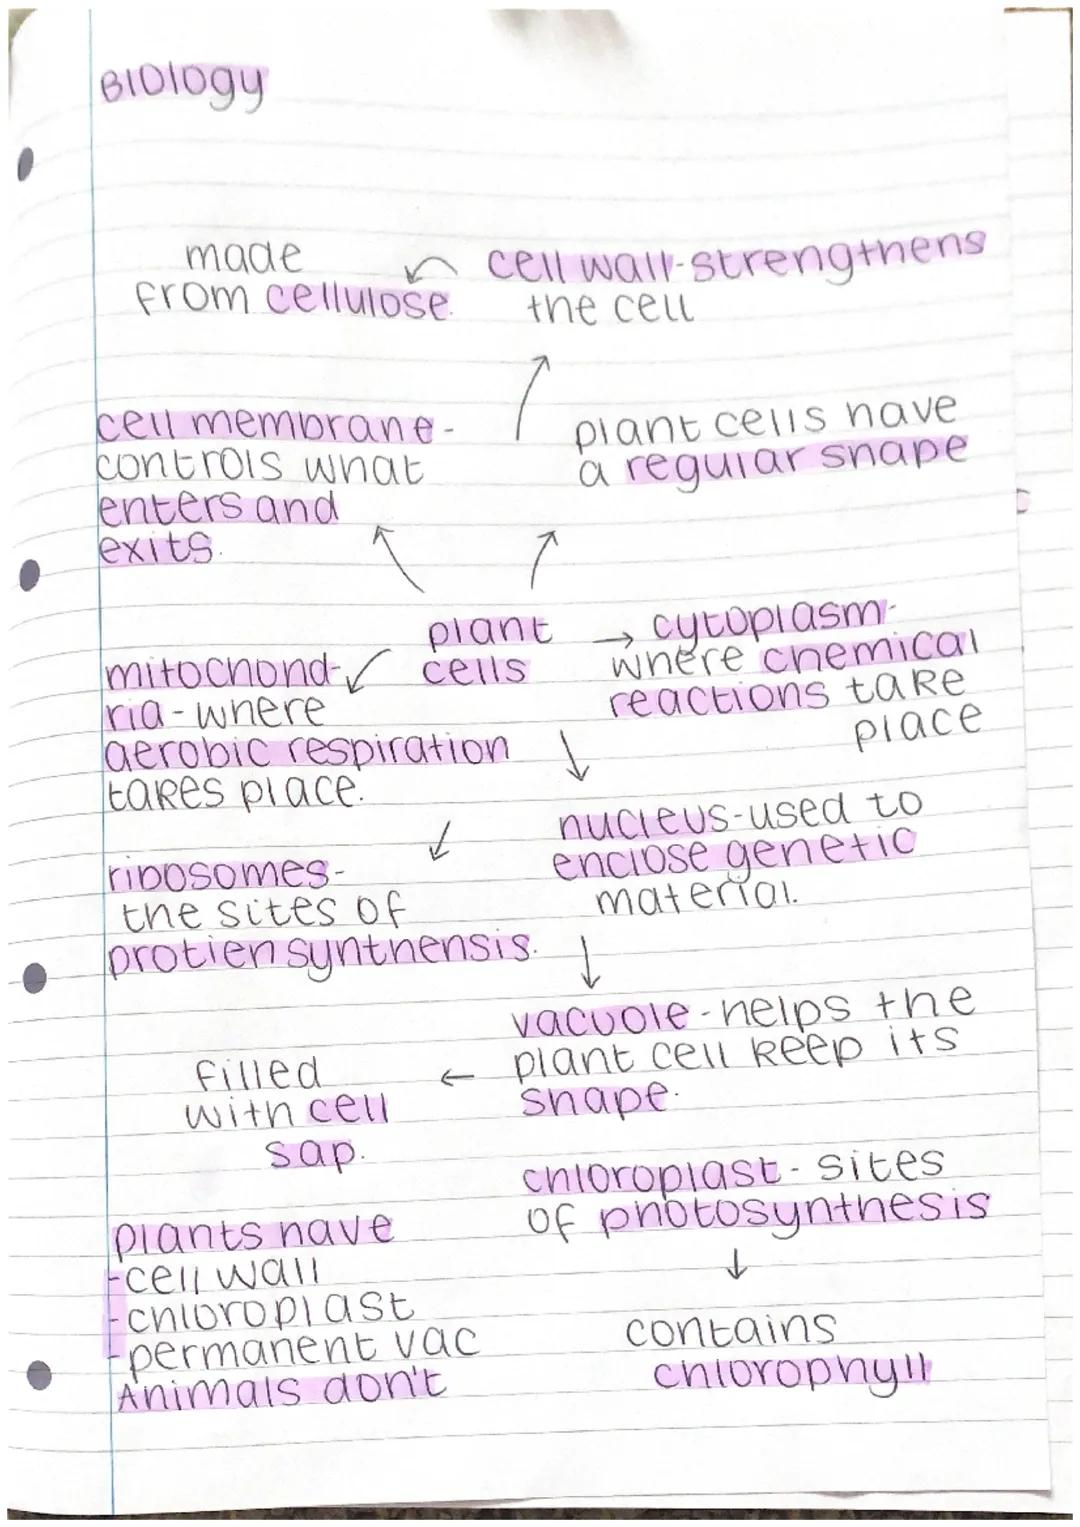 Biology
made
from cellulose.
cell wall-strengthens
the cell
cell membrane-
controls what
enters and
exits.
plant cells have
a regular shape
plant
cells
cytoplasm-
where chemical
reactions take
place
mitochond-
ria-where
aerobic respiration
takes place.
nucleus-used to
enclose genetic
material.
ribosomes-
the sites of
protien synthensis.
vacuole-helps the
plant cell keep its
shape.
filled
with cell
sap.
chloroplast-sites
of photosynthesis
contains
chlorophyll
plants have
-cell wall
-chloroplast
-permanent vac
Animals don't